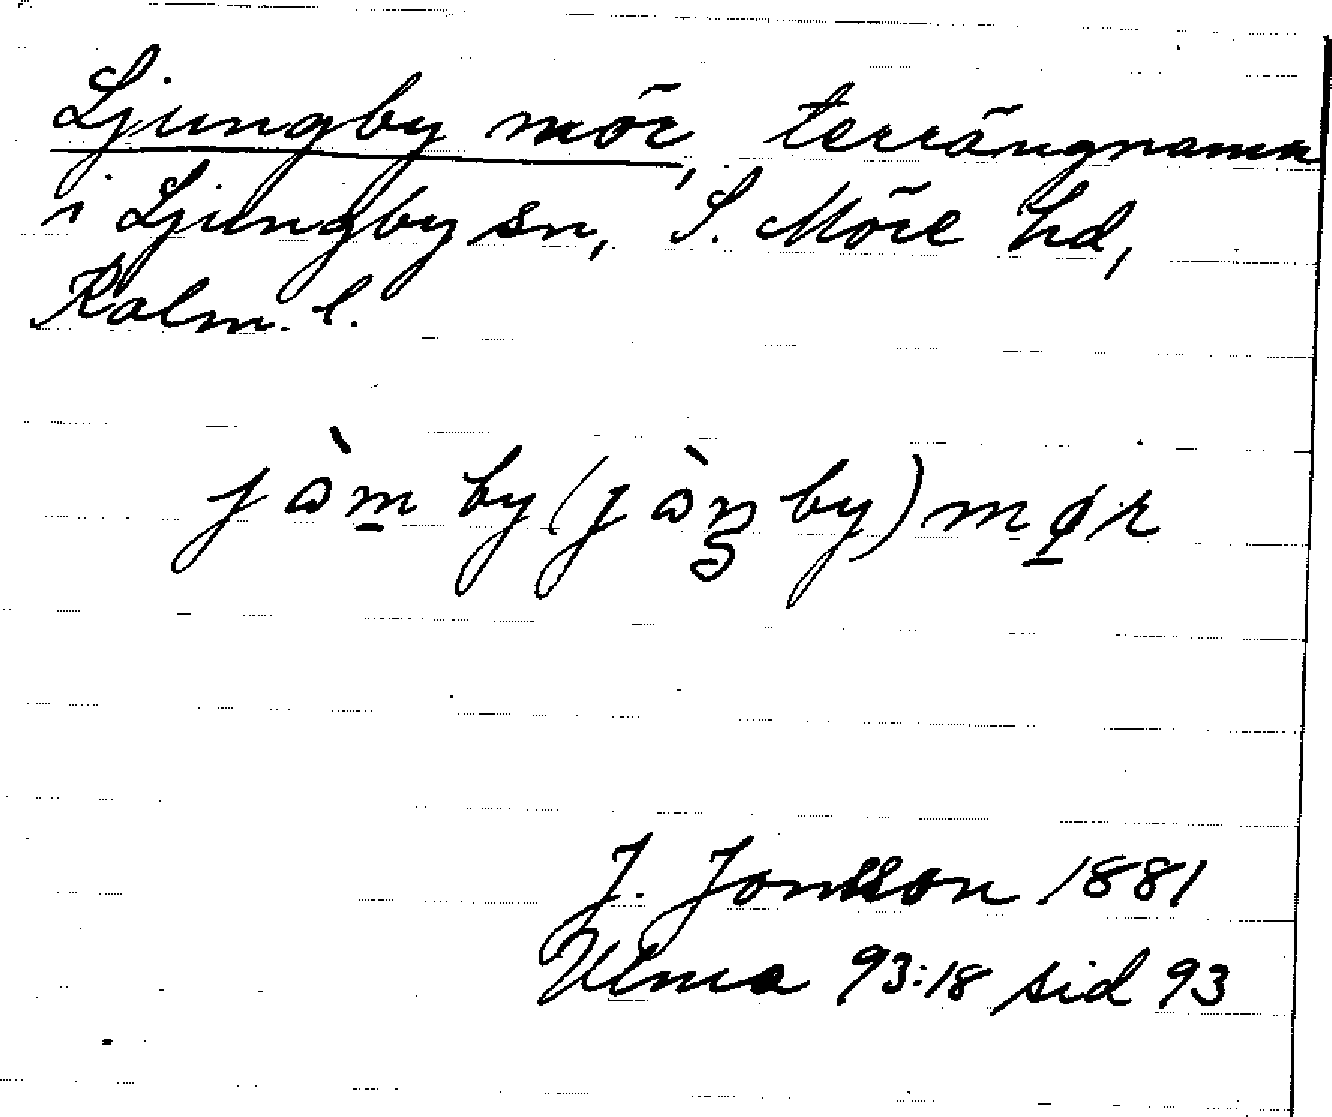 Ljungby mör, terrängnamn
i Ljungby sn, S. Möre hd,
Kalm. l.
jòm̱ by (jòŋ by) mø̱r
J. Jonsson 1881
Ulma 93:18 sid 93